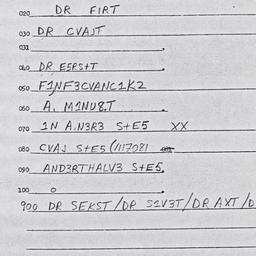 020 DR FIRT
030 DR CVAJT
031
040 DR E5RS+T
050 F1NF3CVANC1K2
060 A. M1NU8.T
070 1N A.N3R3 S+E5 XX
080 CVAJ S+E5 (/117081
090 AND3RTHALV3 S+E5.
100 0
900 DR SEKST/DR S1V3T/DR AXT/D